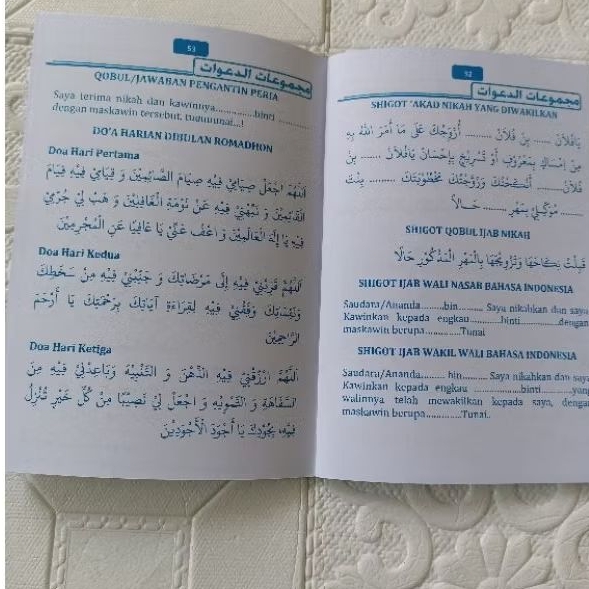 53
مجموعات الدعوات
QOBUL/JAWABAN PENGANTIN PERIA
Saya terima nikah dan kawinnya..............binti ..........
dengan maskawin tersebut, tuuuuunai...!
DO'A HARIAN DIBULAN ROMADHON
Doa Hari Pertama
اَللّٰهُمَّ اجْعَلْ صِيَامِيْ فِيْهِ صِيَامَ الصَّائِمِيْنَ وَ قِيَامِيْ فِيْهِ قِيَامَ
الْقَائِمِيْنَ وَ نَبِّهْنِيْ فِيْهِ عَنْ نَوْمَةِ الْغَافِلِيْنَ وَ هَبْ لِيْ جُرْمِيْ
فِيْهِ يَا إِلٰهَ الْعَالَمِيْنَ وَ اعْفُ عَنِّيْ يَا عَافِيًا عَنِ الْمُجْرِمِيْنَ
Doa Hari Kedua
اَللّٰهُمَّ قَرِّبْنِيْ فِيْهِ إِلَى مَرْضَاتِكَ وَ جَنِّبْنِيْ فِيْهِ مِنْ سَخَطِكَ
وَنَقِمَاتِكَ وَفِّقْنِيْ فِيْهِ لِقِرَاءَةِ آيَاتِكَ بِرَحْمَتِكَ يَا أَرْحَمَ
الرَّاحِمِيْنَ
Doa Hari Ketiga
اَللّٰهُمَّ ارْزُقْنِيْ فِيْهِ الذِّهْنَ وَ التَّنْبِيْهَ وَبَاعِدْنِيْ فِيْهِ مِنَ
السَّفَاهَةِ وَ التَّمْوِيْهِ وَ اجْعَلْ لِيْ نَصِيْبًا مِنْ كُلِّ خَيْرٍ تُنْزِلُ
فِيْهِ، بِجُوْدِكَ يَا أَجْوَدَ الْأَجْوَدِيْنَ
52
مجموعات الدعوات
SHIGOT 'AKAD NIKAH YANG DIWAKILKAN
يَافُلَان ...... بِنْ فُلَانْ ......... أُزَوِّجُكَ عَلَى مَا أَمَرَ اللّٰهُ بِهِ
مِنْ اِمْسَاكٍ بِمَعْرُوْفٍ أَوْ تَسْرِيْحٍ بِإِحْسَانٍ يَافُلَانْ ...... بِنْ
فُلَانْ......... أَنْكَحْتُكَ وَزَوَّجْتُكَ مَخْطُوْبَتَكَ ......... بِنْتْ
...... مُوَكِّلِيْ بِمَهْرِ ......... حَـالًا
SHIGOT QOBUL IJAB NIKAH
قَبِلْتُ نِكَاحَهَا وَتَزْوِيْجَهَا بِالْمَهْرِ الْمَذْكُوْرِ حَالًا
SHIGOT IJAB WALI NASAB BAHASA INDONESIA
Saudara/Ananda..........bin.......... Saya nikahkan dan saya
Kawinkan kepada engkau..............binti..............dengan
maskawin berupa..............Tunai
SHIGOT IJAB WAKIL WALI BAHASA INDONESIA
Saudara/Ananda.......... bin.......... Saya nikahkan dan saya
Kawinkan kepada engkau ..............binti..............yang
walinnya telah mewakilkan kepada saya, dengan
maskawin berupa..............Tunai.